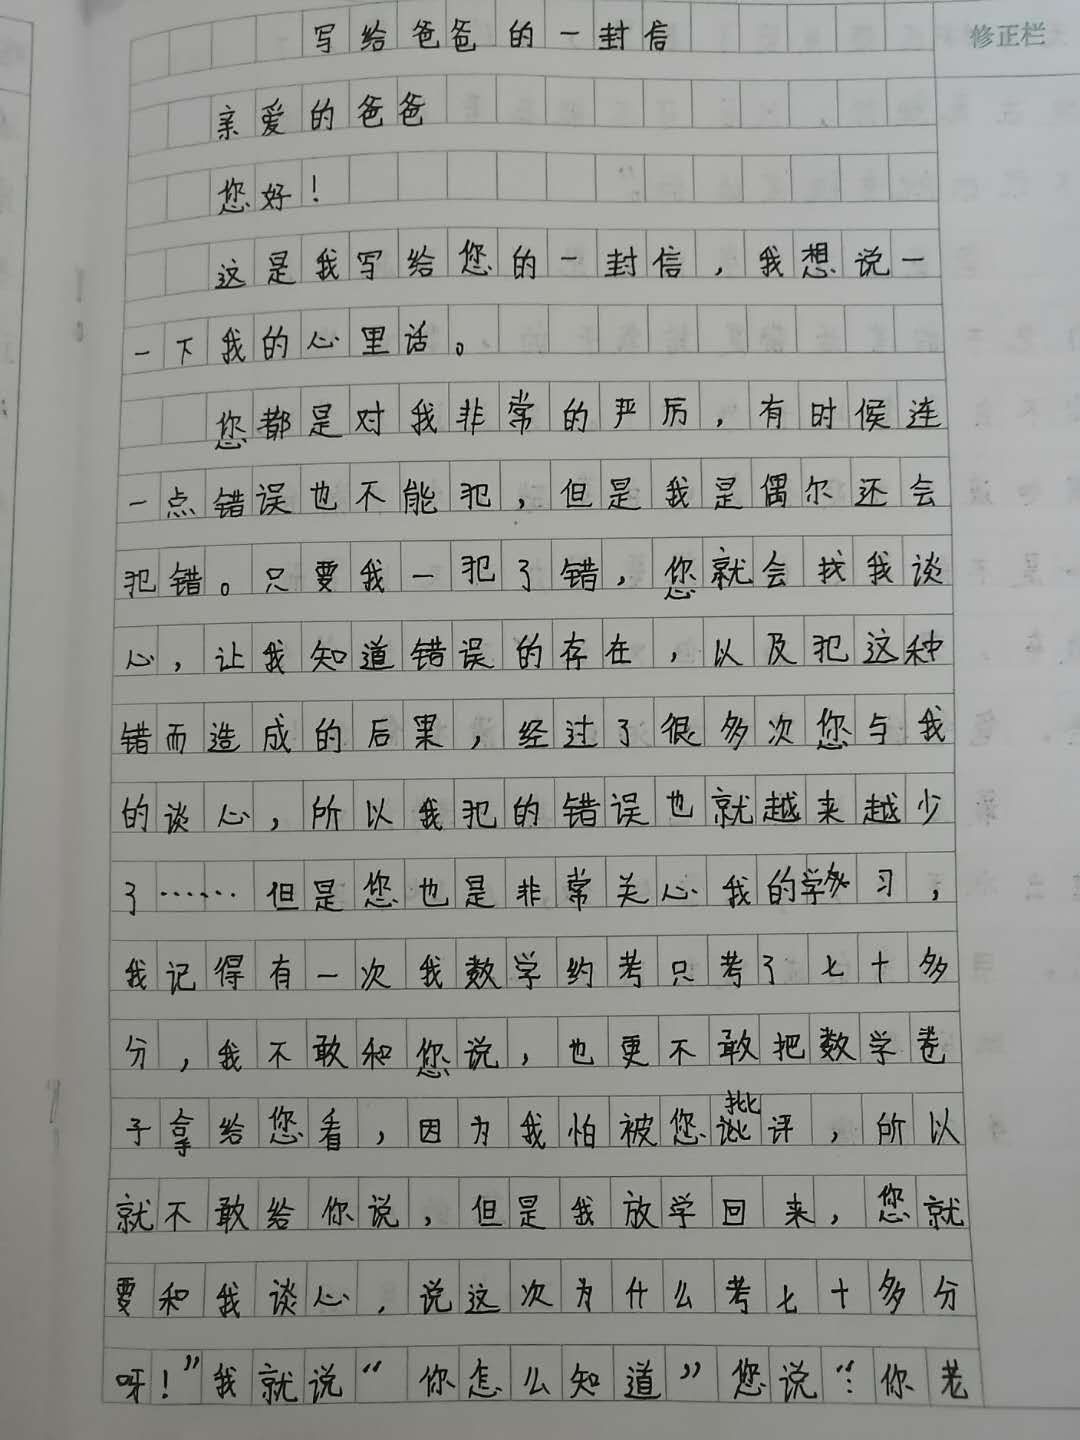 写给爸爸的一封信
修正栏
亲爱的爸爸
您好!
这是我写给您的一封信,我想说一
一下我的心里话。
您都是对我非常的严厉,有时候连
一点错误也不能犯,但是我是偶尔还会
犯错。只要我一犯了错,您就会找我谈
心,让我知道错误的存在,以及犯这种
错而造成的后果,经过了很多次您与我
的谈心,所以我犯的错误也就越来越少
了……但是您也是非常关心我的学习,
我记得有一次我数学约考只考了七十多
分,我不敢和您说,也更不敢把数学卷
子拿给您看,因为我怕被您批评,所以
就不敢给你说,但是我放学回来,您就
要和我谈心,说这次为什么考七十多分
呀!”我就说“你怎么知道”您说“:你老